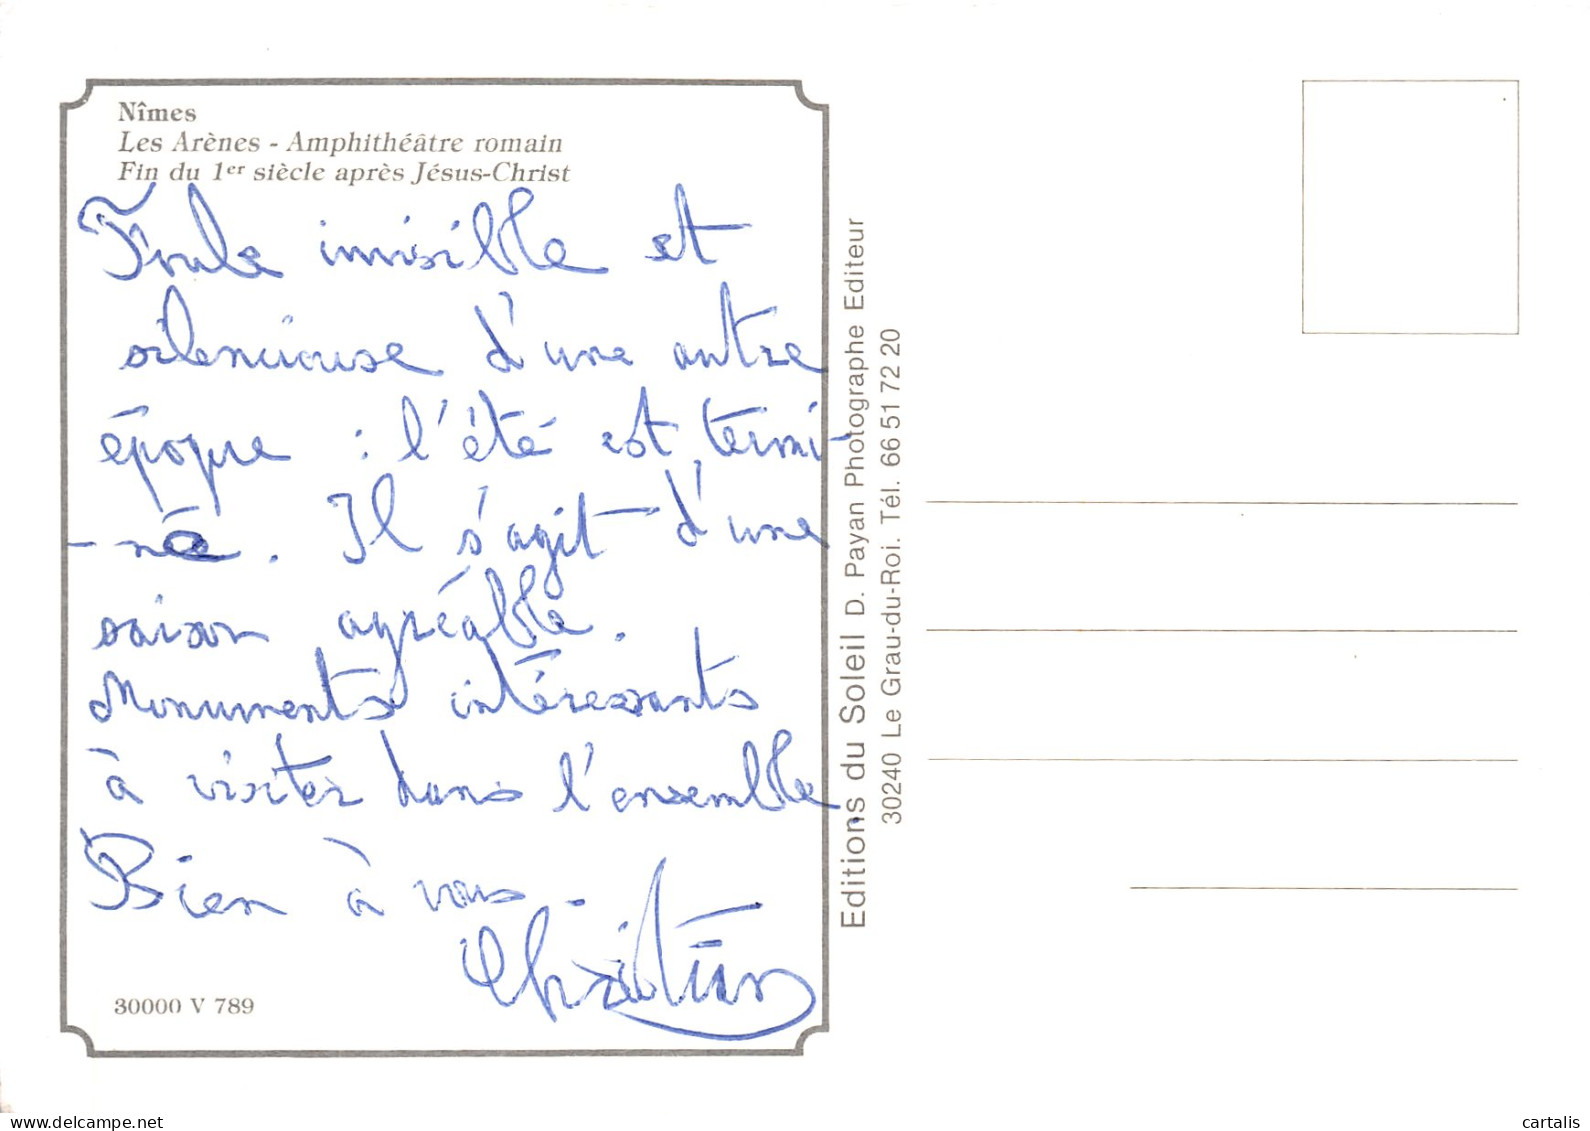 Nîmes
Les Arènes - Amphithéâtre romain
Fin du 1er siècle après Jésus-Christ
Foule invisible et
silencieuse d'une autre
époque : l'été est termi-
-née. Il s'agit d'une
saison agréable.
Monuments intéressants
à visiter dans l'ensemble.
Bien à vous.
Christian
30000 V 789
Editions du Soleil D. Payan Photographe Editeur
30240 Le Grau-du-Roi. Tél. 66 51 72 20
delcampe.net
cartalis